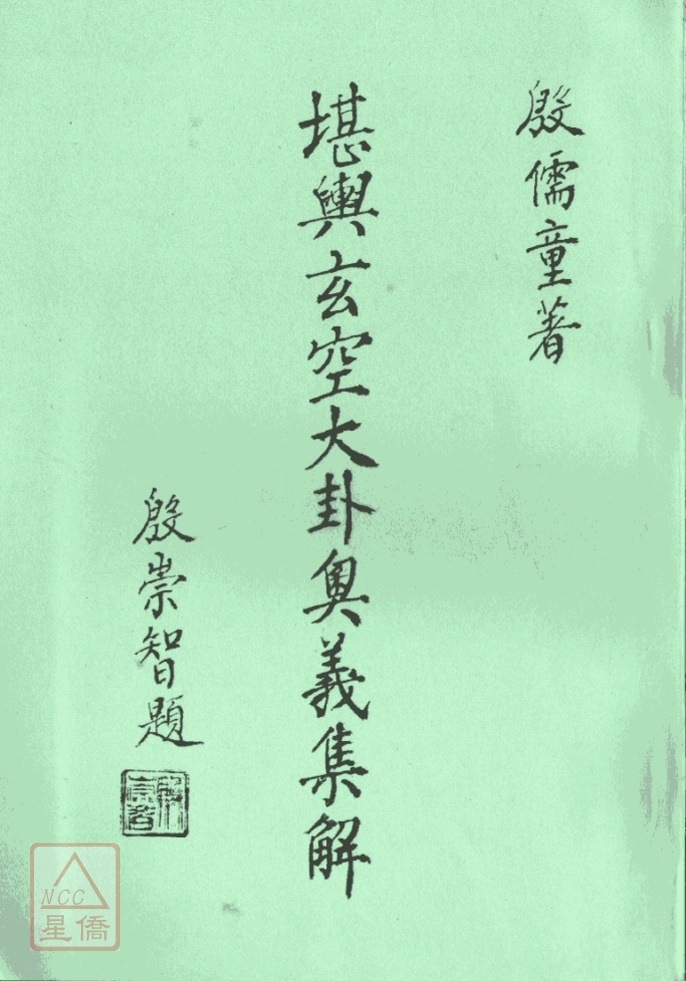 殷儒童著
堪輿玄空大卦奧義集解
殷崇智題
NCC
星僑